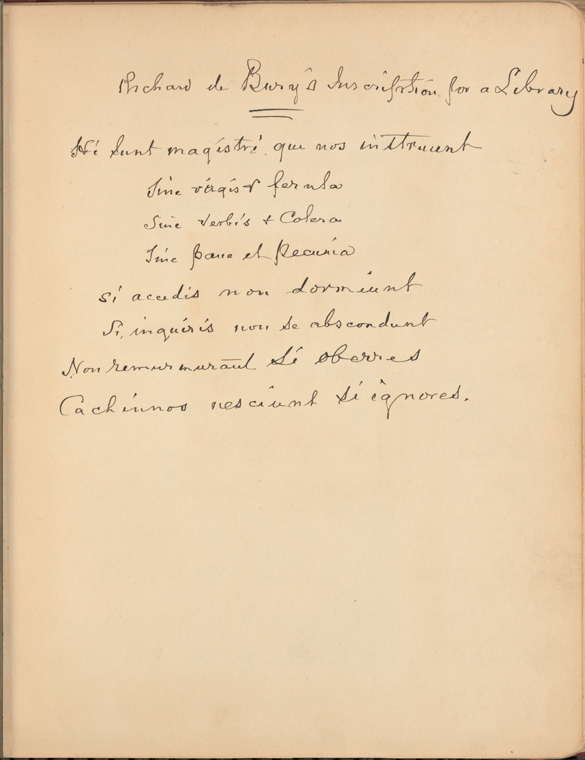 Richard de Bury's Inscription for a Library
Hi sunt magistri qui nos instruunt
Sine virgis & ferula
Sine verbis & Colera
Sine pane et Pecunia
si accedis non dormiunt
Si inquiris non se abscondunt
Non remurmurant Si oberres
Cachinnos nesciunt Si ignores.